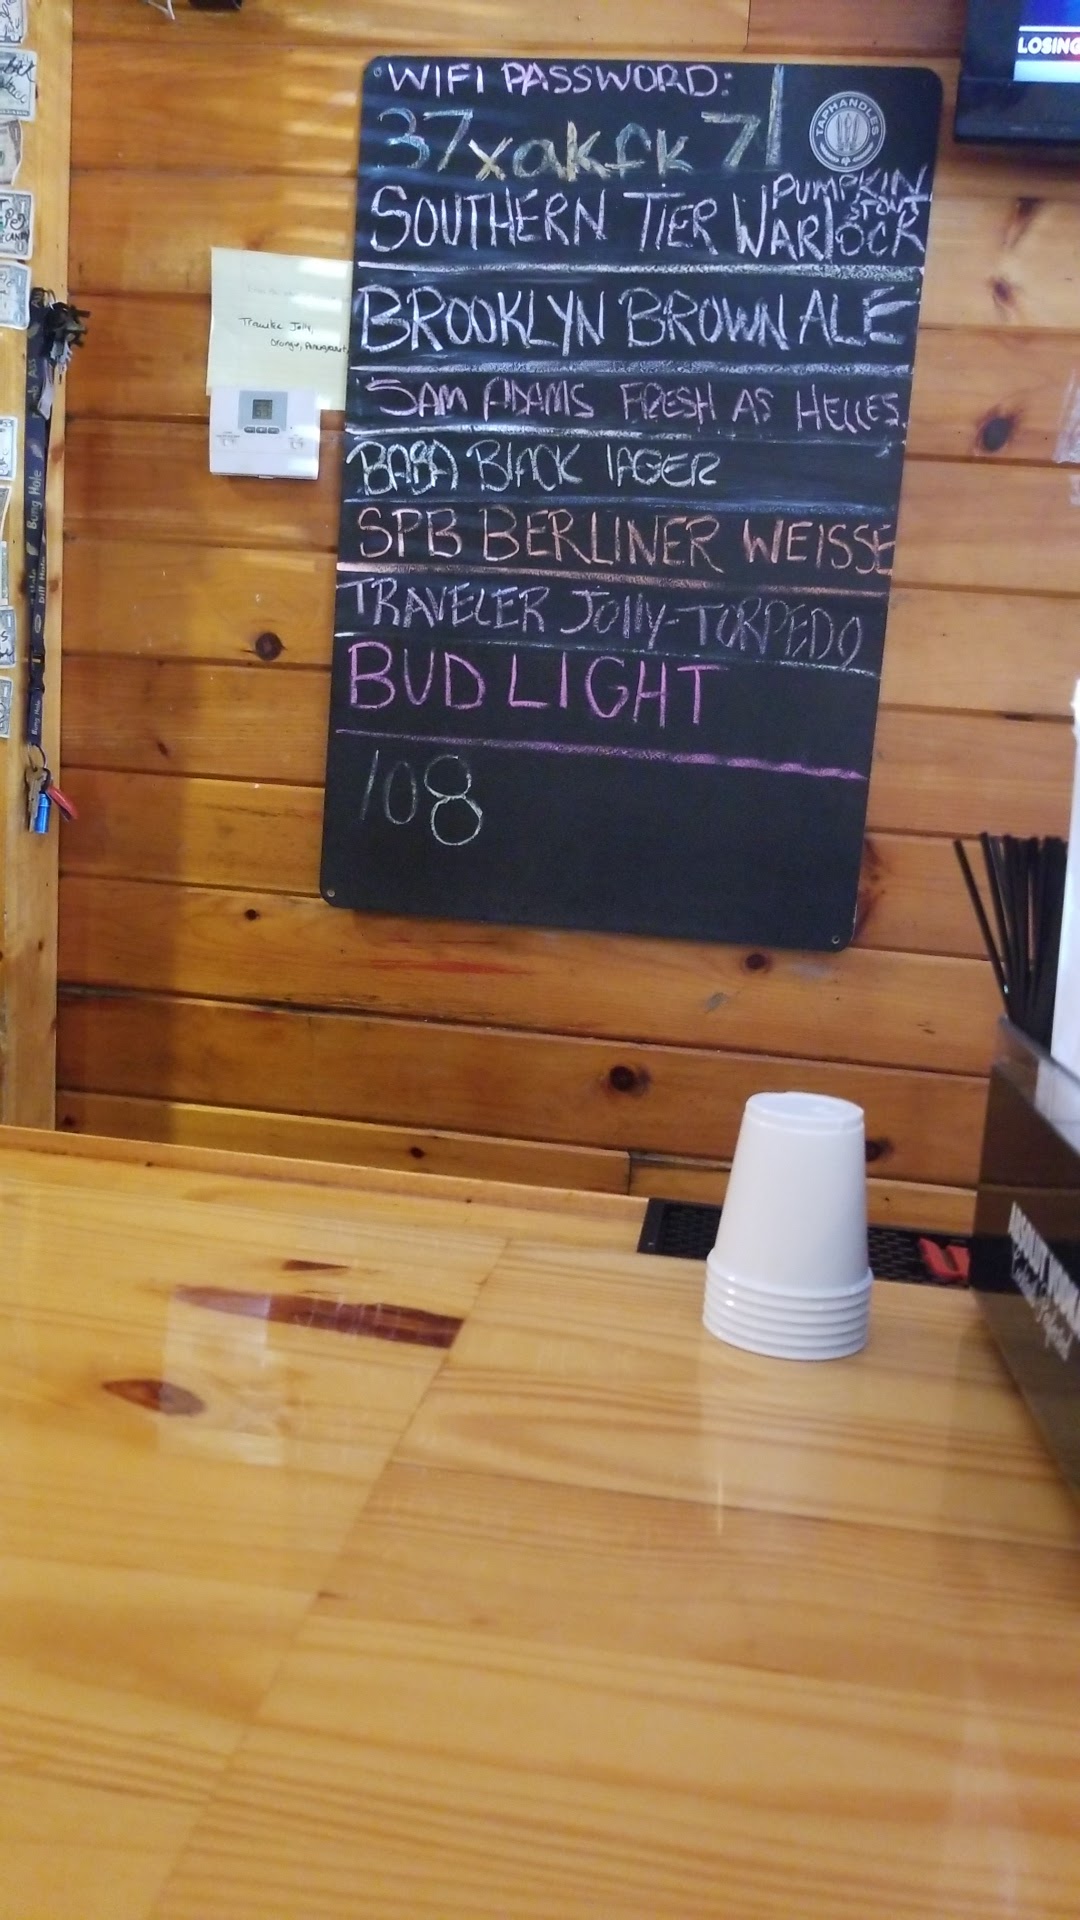 WIFI PASSWORD:
37xakfk71
TAPHANDLES
SOUTHERN TIER WARLOCK
PUMPKIN
STOUT
BROOKLYN BROWN ALE
SAM ADAMS FRESH AS HELLES
BABA BLACK LAGER
SPB BERLINER WEISSE
TRAVELER JOLLY-TORPEDO
BUD LIGHT
108
LOSING
Traveler Jolly,
Orange, Pomegranate
Bung Hole
Bung Hole
ABSOLUT